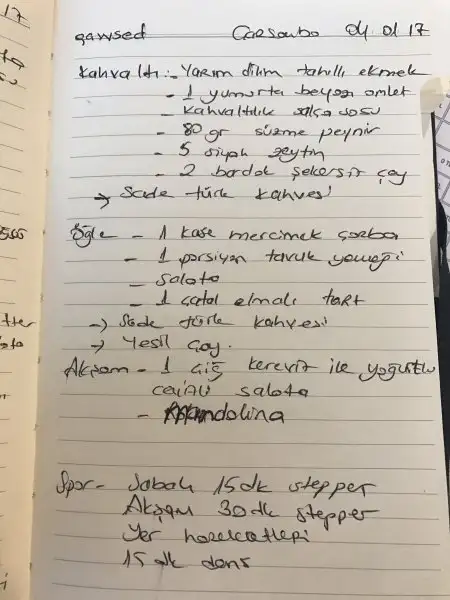 qawsed Çarşamba 04.01.17
Kahvaltı:- Yarım dilim tahıllı ekmek
- 1 yumurta beyazı omlet
- Kahvaltılık salça sosu
- 80 gr süzme peynir
- 5 siyah zeytin
- 2 bardak şekersiz çay
→ Sade türk kahvesi
Öğle - 1 kase mercimek çorba
- 1 porsiyon tavuk yemeği
- Salata
- 1 çatal elmalı tart
→ Sade türk kahvesi
→ Yeşil çay.
Akşam - 1 çiğ kereviz ile yoğurtlu
cevizli salata
- Mandalina
Spor - Sabah 15 dk stepper
Akşam 30 dk stepper
Yer hareketleri
15 dk dans